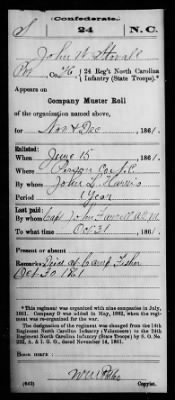 Confederate.
S 24 N.C.
John W Stovall
Pvt, Co. H, 24 Reg't North Carolina
Infantry (State Troops).*
Appears on
Company Muster Roll
of the organization named above,
for Nov & Dec, 1861.
Enlisted:
When June 15, 1861.
Where Person Co N.C.
By whom John L Harris
Period 1 Year
Last paid:
By whom Capt John
To what time Oct 31, 1861.
Present or absent
Remarks: Died at Camp Fisher
Oct 30 1861
*This regiment was organized with nine companies in July,
1861. Company D was added in May, 1862, when the regi-
ment was re-organized for the war.
The designation of the regiment was changed from the 14th
Regiment North Carolina Infantry (Volunteers) to the 24th
Regiment North Carolina Infantry (State Troops) by S. O. No.
222, A. & I. G. O., dated November 14, 1861.
Book mark:
(642) Copyist.